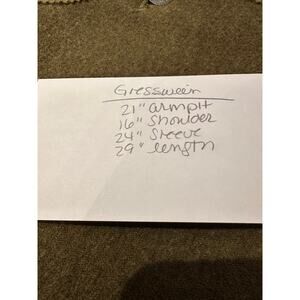 Gressween
21" armpit
16" Shoulder
24" Sleeve
29" length